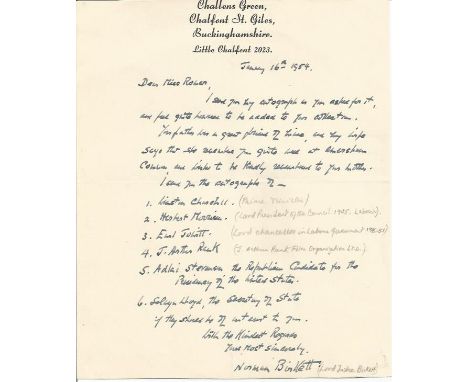 Challens Green,
Chalfont St. Giles,
Buckinghamshire.
Little Chalfont 2023.
January 16th 1954.
Dear Miss Rowan,
I send you my autograph as you asked for it,
and feel quite honoured to be added to your collection.
Your father was a great friend of mine, and my wife
says that she remembers you quite well at Amersham
Common, and wishes to be kindly remembered to your mother.
I send you the autographs of —
1. Winston Churchill. (Prime Minister)
2. Herbert Morrison. (Lord President of the Council 1945. Labour).
3. Earl Jowitt. (Lord Chancellor in Labour Government 1945-51)
4. J. Arthur Rank (J. Arthur Rank Film Organisation etc.)
5. Adlai Stevenson the Republican Candidate for the
Presidency of the United States.
6. Selwyn Lloyd, the Secretary of State
if they should be of interest to you.
With the Kindest Regards
Yours Most Sincerely.
Norman Birkett (Lord Justice Birkett)